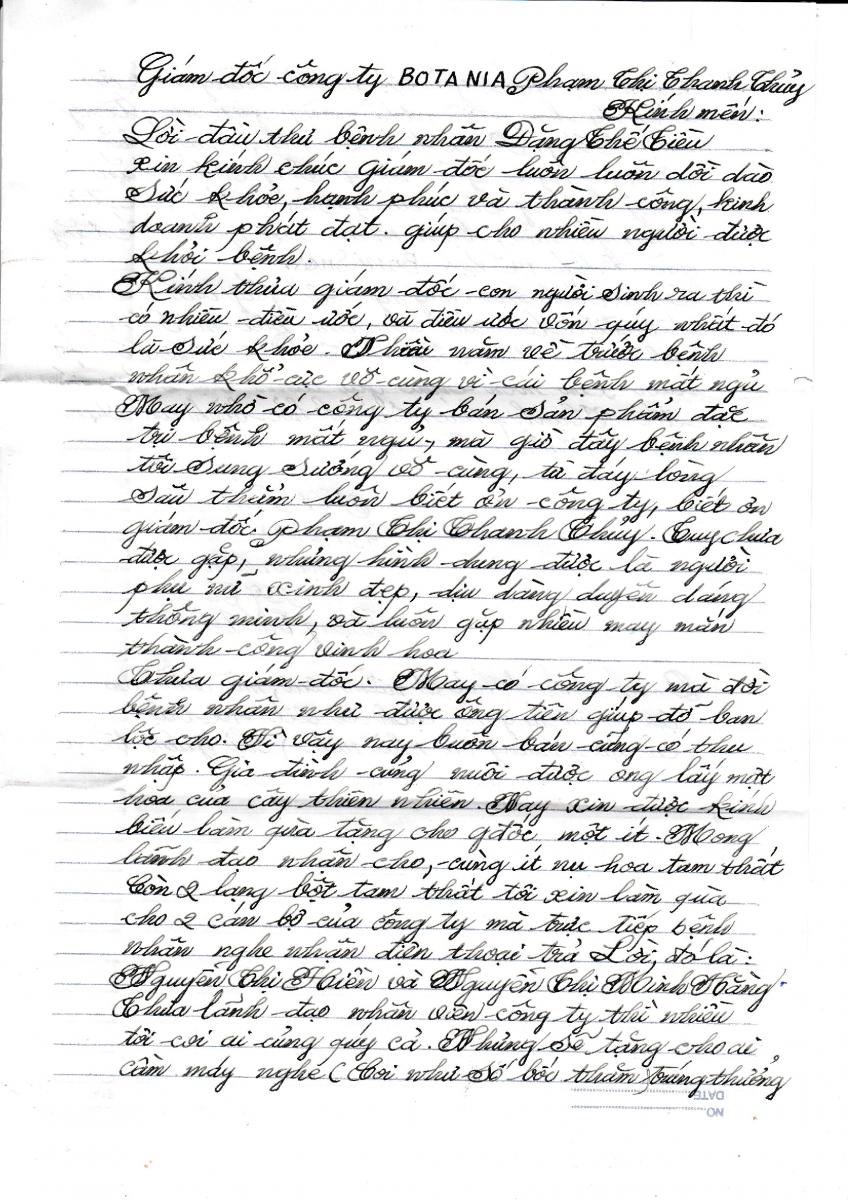 Giám đốc công ty BOTANIA Phạm Thị Thanh Thủy
Kính mến:
Lời đầu thư bệnh nhân Đặng Thế Tiều
xin kính chúc giám đốc luôn luôn dồi dào
sức khỏe, hạnh phúc và thành công, kinh
doanh phát đạt. giúp cho nhiều người được
khỏi bệnh.
Kính thưa giám đốc con người sinh ra thì
có nhiều điều ước, và điều ước vốn quý nhất đó
là sức khỏe. Nhiều năm về trước bệnh
nhân khổ cực vô cùng vì cái bệnh mất ngủ
May nhờ có công ty bán sản phẩm đặc
trị bệnh mất ngủ, mà giờ đây bệnh nhân
tôi sung sướng vô cùng, từ đáy lòng
sâu thẳm luôn biết ơn công ty, biết ơn
giám đốc Phạm Thị Thanh Thủy. Tuy chưa
được gặp, nhưng hình dung được là người
phụ nữ xinh đẹp, dịu dàng duyên dáng
thông minh, và luôn gặp nhiều may mắn
thành công vinh hoa
Thưa giám đốc. May có công ty mà đời
bệnh nhân như được ông tiên giúp đỡ ban
lộc cho. Vì vậy nay buôn bán cũng có thu
nhập. Gia đình cũng nuôi được ong lấy mật
hoa của cây thiên nhiên. Nay xin được kính
biếu làm qùa tặng cho gđốc một ít. Mong
lãnh đạo nhân cho, cùng ít nụ hoa tam thất
Còn 2 lạng bột tam thất tôi xin làm qùa
cho 2 cán bộ của công ty mà trực tiếp bệnh
nhân nghe nhận điện thoại trả Lời, đó là:
Nguyễn Thị Hiền và Nguyễn Thị Minh Hằng
Thưa lãnh đạo nhân viên công ty thì nhiều
tôi coi ai củng quý cả. Nhưng sẽ tặng cho ai
cầm máy nghe (Coi như số bốc thăm trúng thưởng
NO
DATE